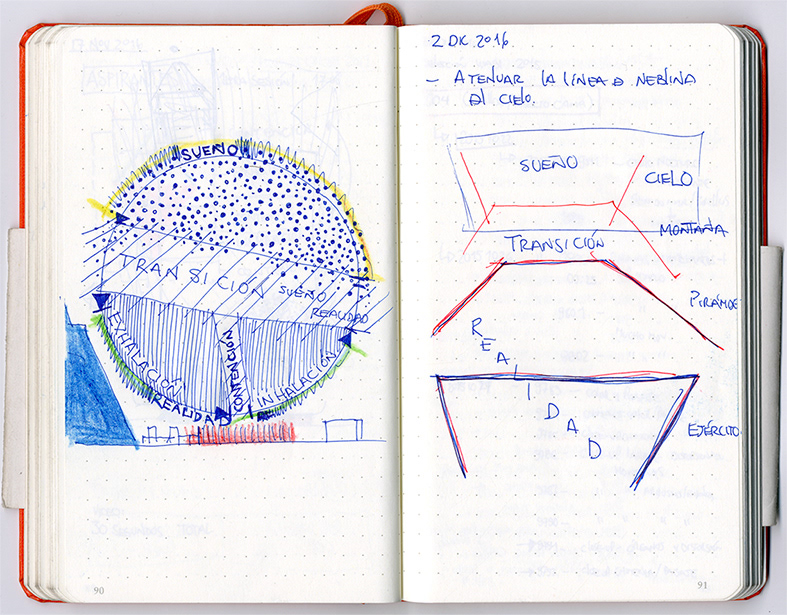 SUEÑO
TRANSICIÓN
SUEÑO
REALIDAD
EXHALACIÓN
CONTENCIÓN
INHALACIÓN
REALIDAD
90
2 DIC 2016
- ATENUAR LA LÍNEA D NEBLINA
DL CIELO.
SUEÑO
CIELO
MONTAÑA
TRANSICIÓN
PIRÁMIDE
REALIDAD
EJÉRCITO
91